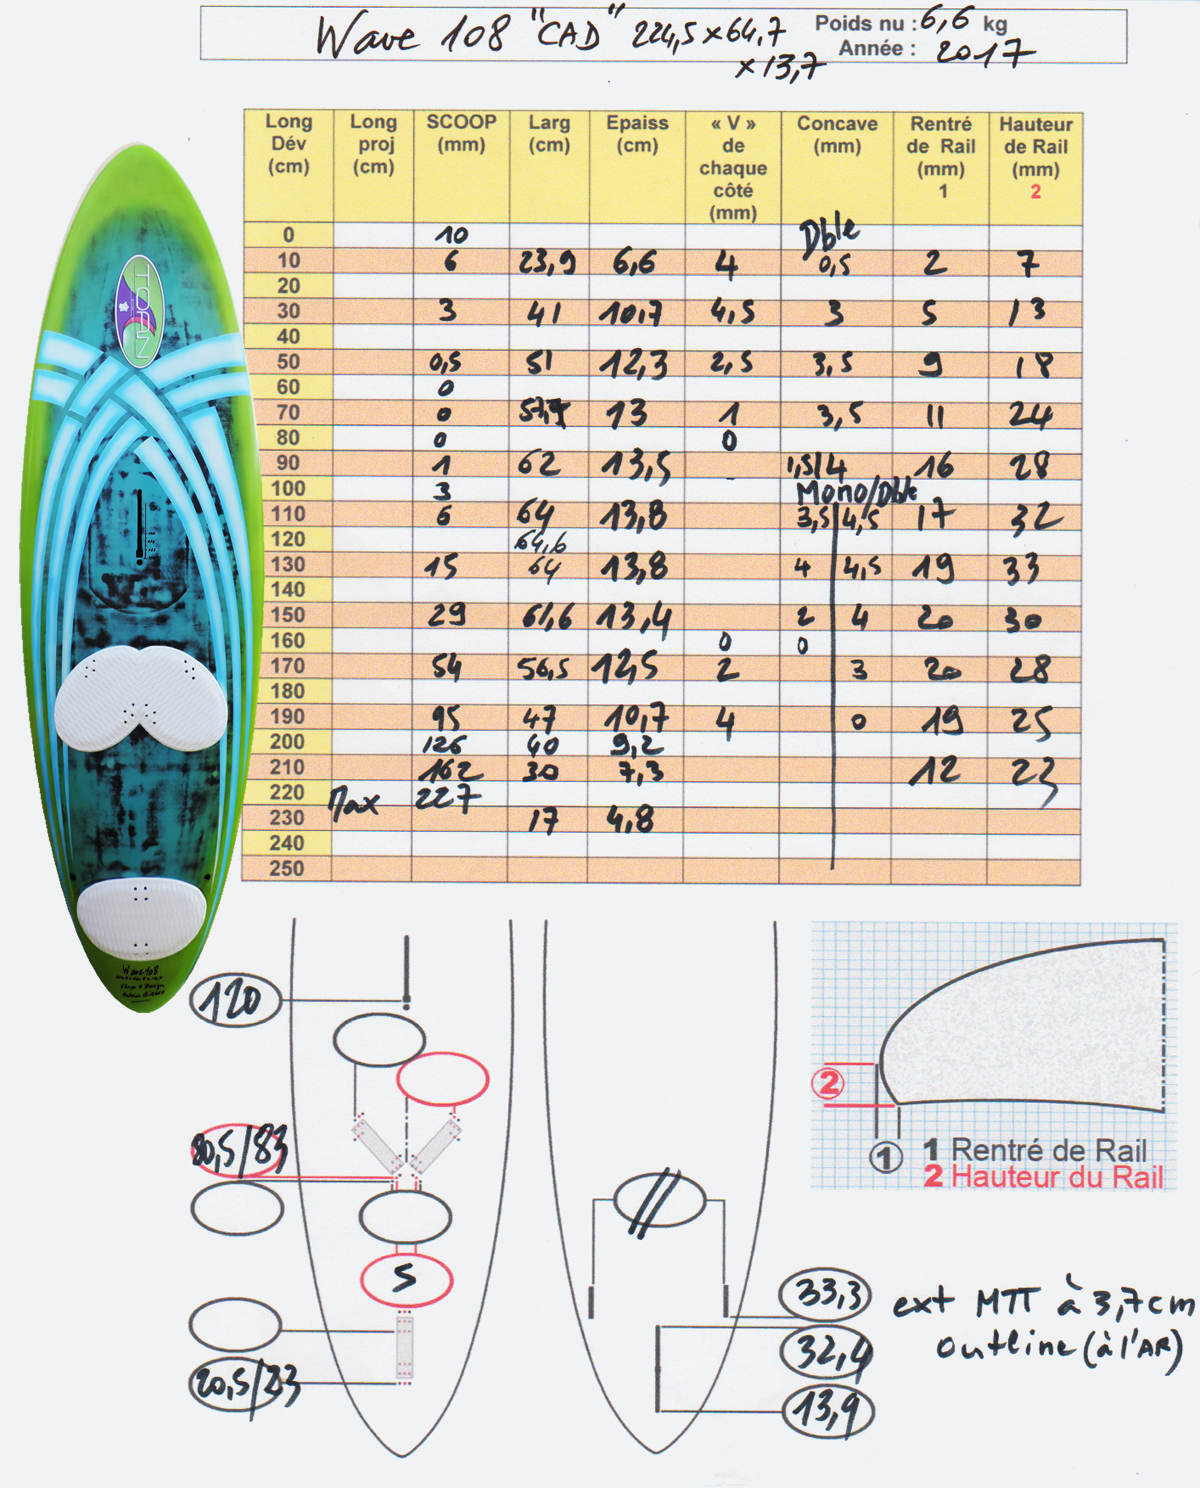 Wave 108 "CAD" 224,5 x 64,7 x 13,7
Poids nu : 6,6 kg
Année : 2017
Long Dév (cm) Long proj (cm) SCOOP (mm) Larg (cm) Epaiss (cm) « V » de chaque côté (mm) Concave (mm) Rentré de Rail (mm) 1 Hauteur de Rail (mm) 2
0 10 Dble
10 6 23,9 6,6 4 0,5 2 7
20
30 3 41 10,7 4,5 3 5 13
40
50 0,5 51 12,3 2,5 3,5 9 18
60 0
70 0 13 1 3,5 11 24
80 0 0
90 1 62 13,5 1,5/4 16 28
100 3 Mono/Dble
110 6 64 13,8 3,5 4,5 17 32
120 64,6
130 15 64 13,8 4 4,5 19 33
140
150 29 61,6 13,4 2 4 20 30
160 0 0
170 54 56,5 12,5 2 3 20 28
180
190 95 47 10,7 4 0 19 25
200 126 40 9,2
210 162 30 7,3 12 23
220 Max 227
230 17 4,8
240
250
TOFN
Wave 108
120
80,5/83
5
20,5/23
//
33,3
32,4
13,9
ext MTT à 3,7cm
outline (à l'AR)
2
1
1 Rentré de Rail
2 Hauteur du Rail